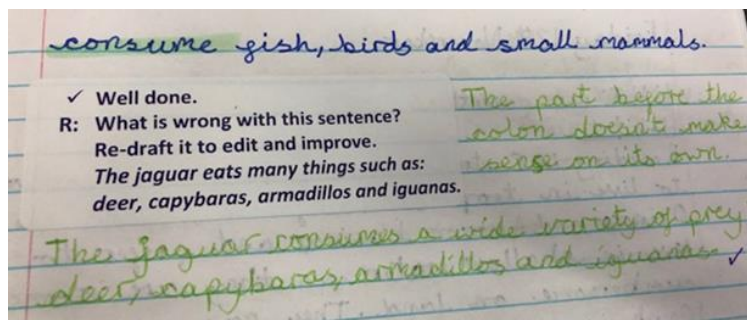 consume fish, birds and small mammals.
✓ Well done.
R: What is wrong with this sentence?
Re-draft it to edit and improve.
The jaguar eats many things such as:
deer, capybaras, armadillos and iguanas.
The part before the
colon doesn't make
sense on its own.
The jaguar consumes a wide variety of prey
deer, capybaras, armadillos and iguanas ✓